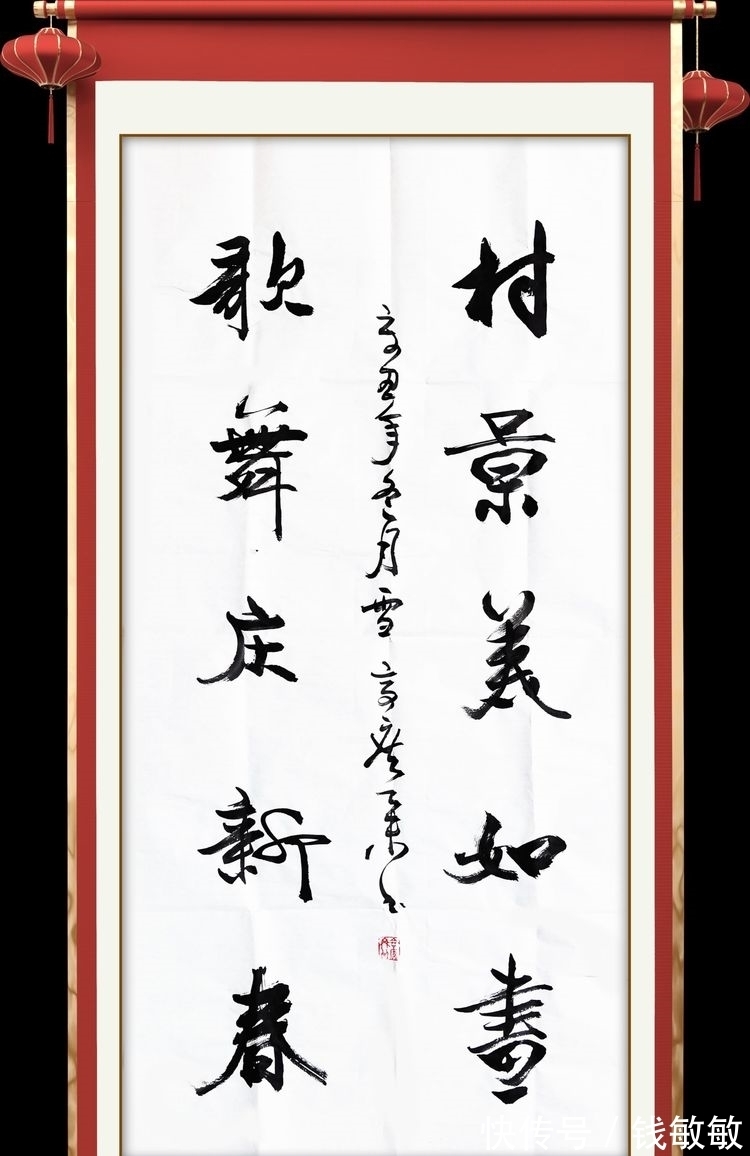 村景美如畫
辛丑年冬月雪
歌舞庆新春
快传号 / 钱敏敏